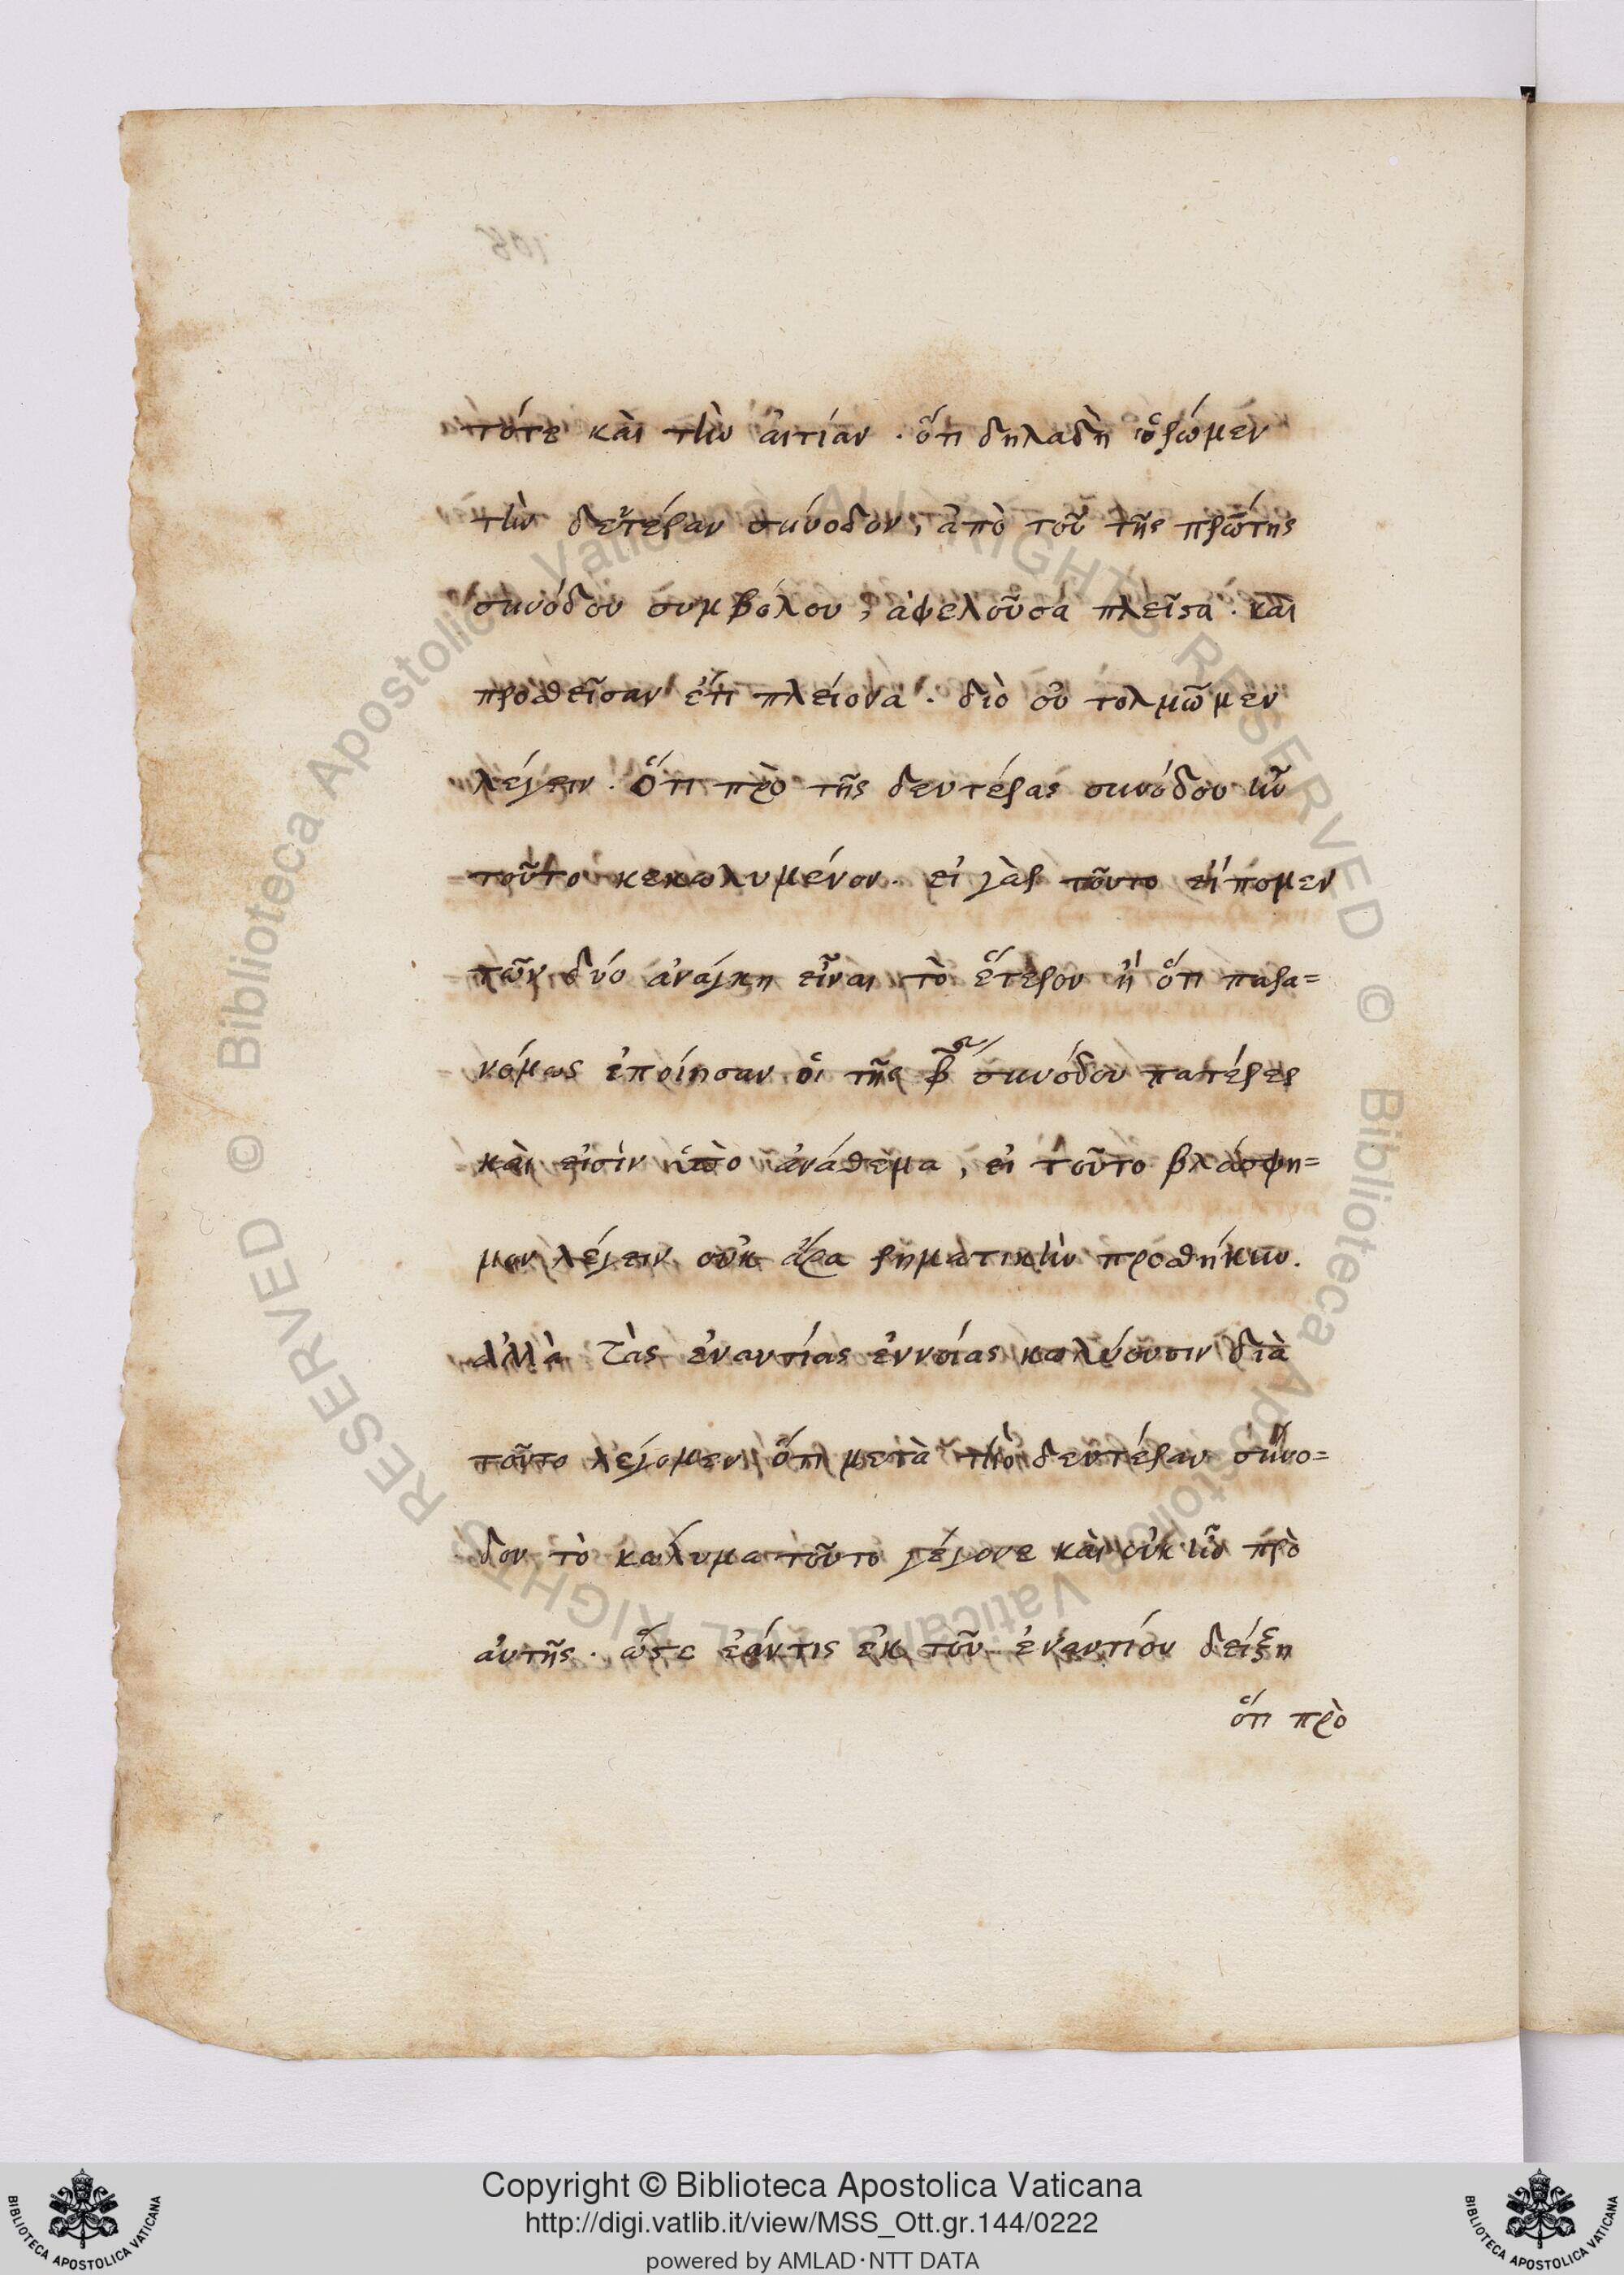 τότε καὶ τὴν ἀιτίαν . ὅτι δηλαδὴ ὁρώμεν
τὴν δευτέραν σύνοδον, ἀπὸ τοῦ τῆς πρώτης
συνόδου συμβόλου, ἀφελοῦσα πλεῖστα . καὶ
προσθεῖσαν ἔτι πλείονα . διὸ οὐ τολμῶμεν
λέγειν . ὅτι πρὸ τῆς δευτέρας συνόδου ἦν
τοῦτο κεκωλυμένον . εἰ γὰρ τοῦτο εἴπομεν
τῶν δύο ἀνάγκη εἶναι τὸ ἕτερον ἢ ὅτι παρα=
νόμως ἐποίησαν οἱ τῆς β̅ας συνόδου πατέρες
καὶ εἰσὶν ὑπὸ ἀνάθεμα, εἰ τοῦτο βλάσφη=
μον λέγειν οὐκ ἄρα ῥηματικὴν προσθήκην .
ἀλλὰ τὰς ἐναντίας ἐννοίας κωλύουσιν διὰ
τοῦτο λέγομεν ὅτι μετὰ τὴν δευτέραν σύνο=
δον τὸ κώλυμα τοῦτο γέγονε καὶ οὐκ ἦν πρὸ
ἀυτῆς . ὥστε ἐάντις ἐκ τοῦ ἐναντίου δείξη
ὅτι πρὸ
108
Copyright © Biblioteca Apostolica Vaticana
http://digi.vatlib.it/view/MSS_Ott.gr.144/0222
powered by AMLAD·NTT DATA